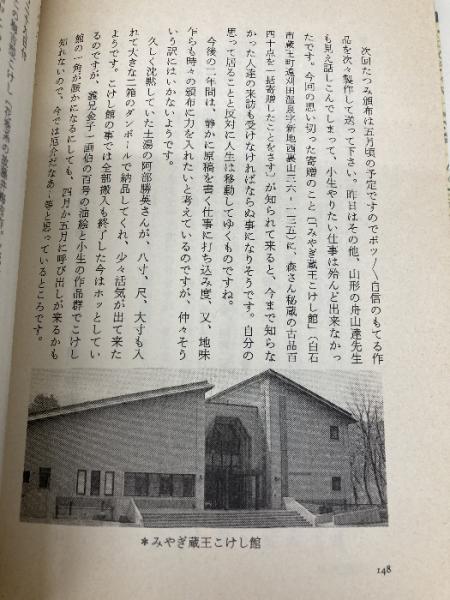 次回たつみ頒布は五月頃の予定ですのでボツ〳〵自信のもてる作
品を次々製作して送って下さい。昨日はその他、山形の舟山達先生
も見え話しこんでしまって、小生やりたい仕事は殆んど出来なかっ
たです。今回の思い切った寄贈のこと（「みやぎ蔵王こけし館」（白石
市蔵王町遠刈田温泉字新地西裏山三六－一三五）に、森さん秘蔵の古品百
四十点を一括寄贈したことをさす）が知られて来ると、今まで知らな
かった人達の来訪も受けなければならぬ事になりそうです。自分の
思って居ることと反対に人生は移動してゆくものですね。
今後の二年間は、静かに原稿を書く仕事に打ち込み度、又、地味
乍らも時々の頒布に力を入れたいと考えているのですが、仲々そう
いう訳にはいかないようです。
久しく沈黙していた土湯の阿部勝英さんが、八寸、尺、大寸も入
れて大きな二箱のダンボールで納品してくれ、少々活気が出て来た
ようです。こけし館の事では全部搬入も終了した今はホッとしてい
るのですが、義兄金子一画伯の百号の油絵と小生の作品群でこけし
館の一角が賑かになるにしても、四月か五月に呼び出しが来るかも
知れないので、今では厄介だなあ－等と思っているところです。
＊みやぎ蔵王こけし館
148